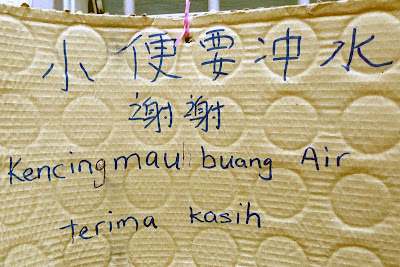 小便要冲水
谢谢
Kencing mau buang Air
terima kasih